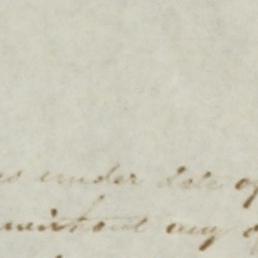 under date of
without any